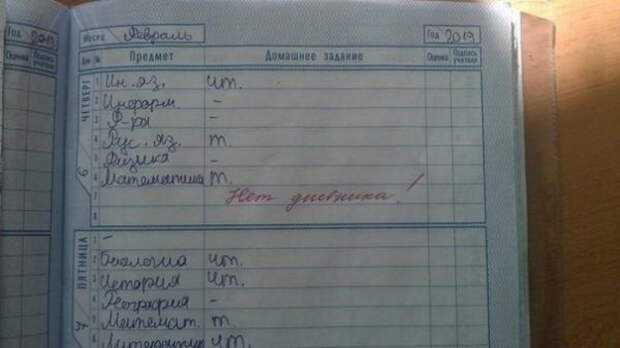 Год 2019
Оценка Подпись учителя
Месяц Февраль Год 2019
Дни № Предмет Домашнее задание Оценка Подпись учителя
ЧЕТВЕРГ
1 Ин. яз. чт.
2 Информ. -
3 -
4 Рус. яз. т.
5 Физика -
6 Математика т.
7 Нет дневника!
8
ПЯТНИЦА
1 -
2 Биология чт.
3 История чт.
4 География -
5 Математ. т.
6 чт.